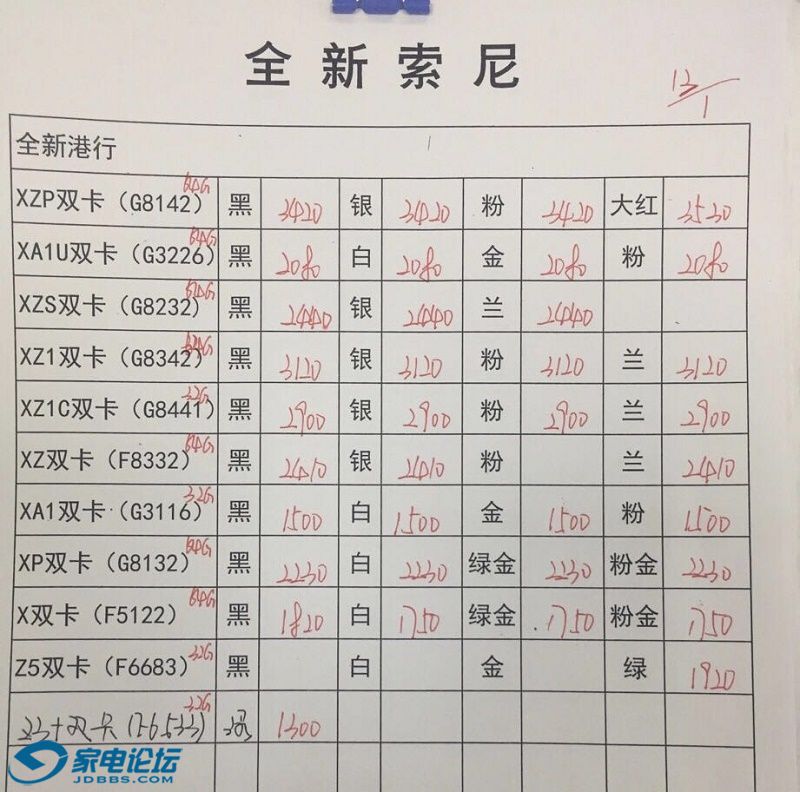 全新索尼
13/1
全新港行
XZP双卡（G8142）64G 黑 3420 银 3420 粉 3420 大红 3530
XA1U双卡（G3226）64G 黑 2080 白 2080 金 2080 粉 2080
XZS双卡（G8232）64G 黑 2440 银 2440 兰 2440
XZ1双卡（G8342）64G 黑 3120 银 3120 粉 3120 兰 3120
XZ1C双卡（G8441）32G 黑 2900 银 2900 粉 2900 兰 2900
XZ双卡（F8332）64G 黑 2410 银 2410 粉 兰 2410
XA1双卡（G3116）32G 黑 1500 白 1500 金 1500 粉 1500
XP双卡（G8132）64G 黑 2230 白 2230 绿金 2230 粉金 2230
X双卡（F5122）64G 黑 1820 白 1750 绿金 1750 粉金 1750
Z5双卡（F6683）32G 黑 白 金 绿 1920
Z3+双卡（F6533）32G 1300
家电论坛
JDBBS.COM